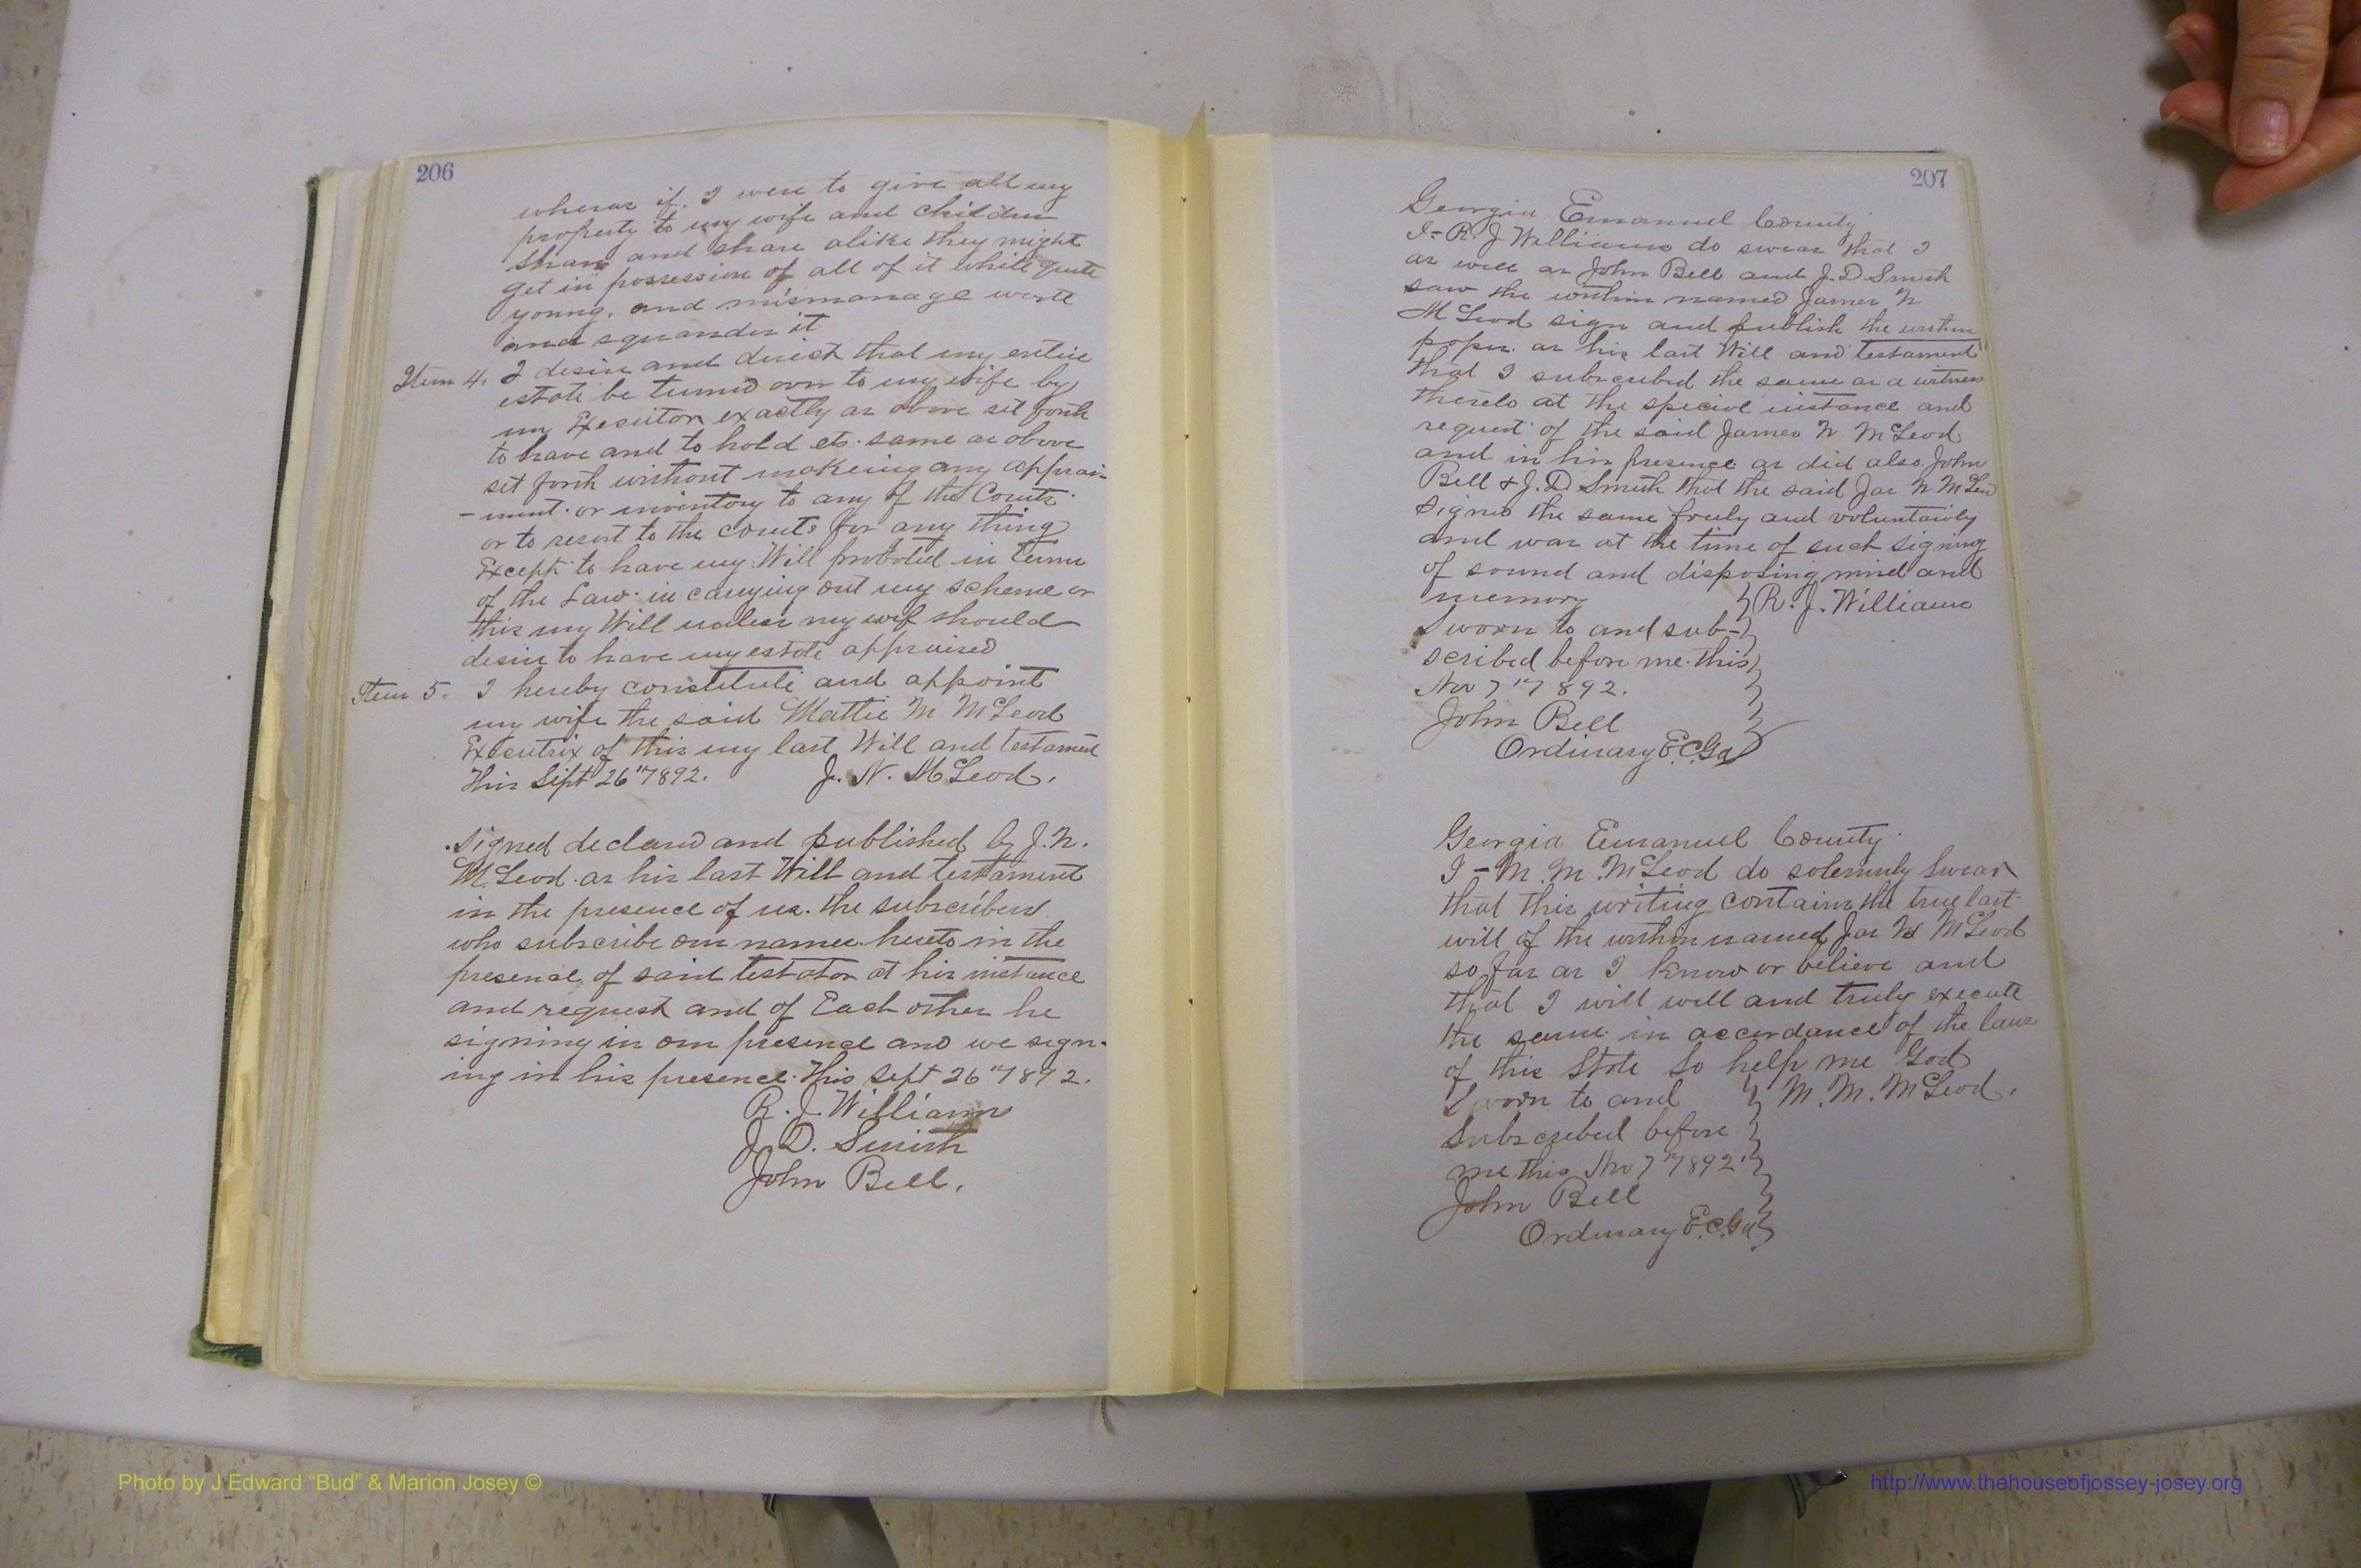 206
whereas if I were to give all my
property to my wife and children
Share and share alike they might
get in possession of all of it while quite
young. and mismanage waste
and squander it
Item 4. I desire and direct that my entire
estate be turned over to my wife by
my Executor exactly as above set forth
to have and to hold etc. same as above
set forth without makeing any apprais-
-ment. or inventory to any of the Courts.
or to resort to the courts for any thing
Except to have my Will probated in terms
of the Law. in carrying out my scheme or
this my Will unless my wife should
desire to have my estate appraised
Item 5. I hereby constitute and appoint
my wife the said Mattie M McLeod
Executrix of this my last Will and testament
This Sept 26" 1892. J. N. McLeod.
Signed declared and published by J. N.
McLeod. as his last Will and testament
in the presence of us. the subscribers
who subscribe our names hereto in the
presence of said testator at his instance
and request and of Each other he
signing in our presence and we sign-
ing in his presence. This Sept 26" 1892.
R. J. Williams
J. D. Smith
John Bell.
207
Georgia Emanuel County
I- R. J Williams do swear that I
as well as John Bell and J. D Smith
saw the within named James N
McLeod sign and publish the within
paper as his last Will and testament
that I subscribed the same as a witness
thereto at the special instance and
request of the said James N McLeod
and in his presence as did also John
Bell & J. D Smith that the said Jas N McLeod
signed the same freely and voluntarily
and was at the time of such signing
of sound and disposing mind and
memory R. J. Williams
Sworn to and sub-
scribed before me this
Nov 7" 1892.
John Bell
Ordinary E.C.Ga
Georgia Emanuel County
I - M. M. McLeod do solemnly Swear
that this writing contains the true last
will of the within named Jas N McLeod
so far as I know or believe and
that I will well and truly execute
the same in accordance of the laws
of this State So help me God
Sworn to and M. M. McLeod.
Subscribed before
me this Nov 7" 1892
John Bell
Ordinary E.C.Ga
Photo by J Edward “Bud” & Marion Josey ©
http://www.thehouseofjossey-josey.org